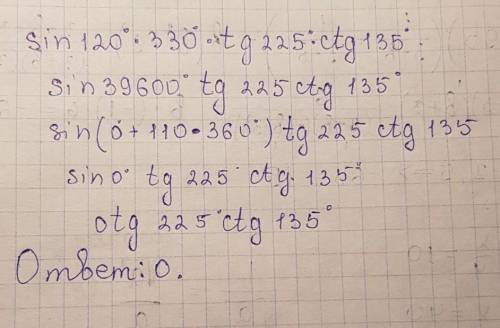 sin 120°·330°·tg 225°·ctg 135°
sin 39600° tg 225 ctg 135°
sin(0+110·360°) tg 225 ctg 135
sin 0° tg 225° ctg 135°
0tg 225°ctg 135°
Ответ: 0.